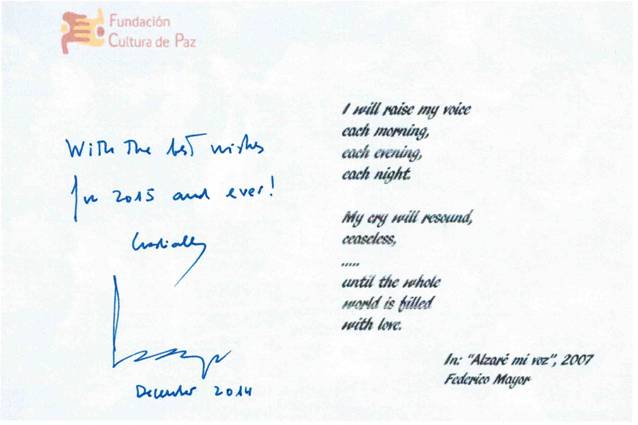 Fundación
Cultura de Paz
With the best wishes
for 2015 and ever!
Cordially
December 2014
I will raise my voice
each morning,
each evening,
each night.
My cry will resound,
ceaseless,
.....
until the whole
world is filled
with love.
In: "Alzaré mi voz", 2007
Federico Mayor